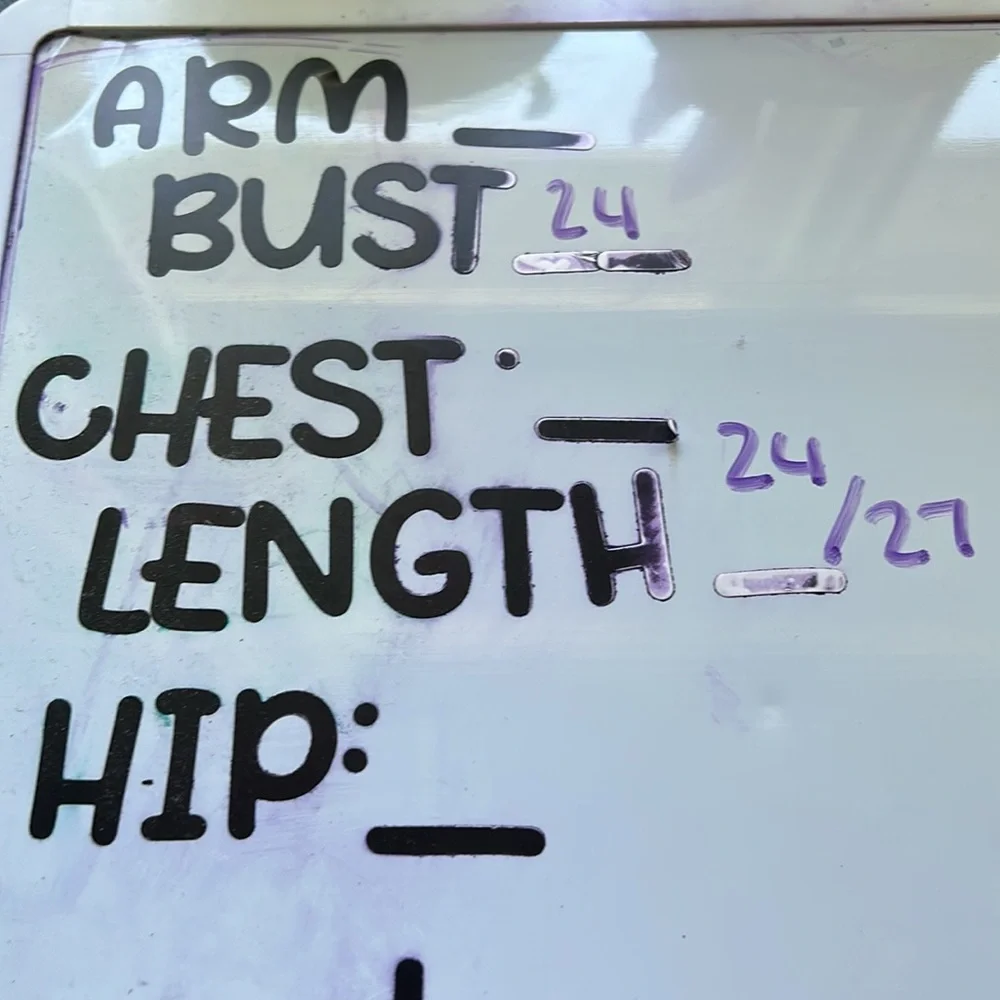 ARM _
BUST 24
CHEST · _
LENGTH 24/27
HIP: _